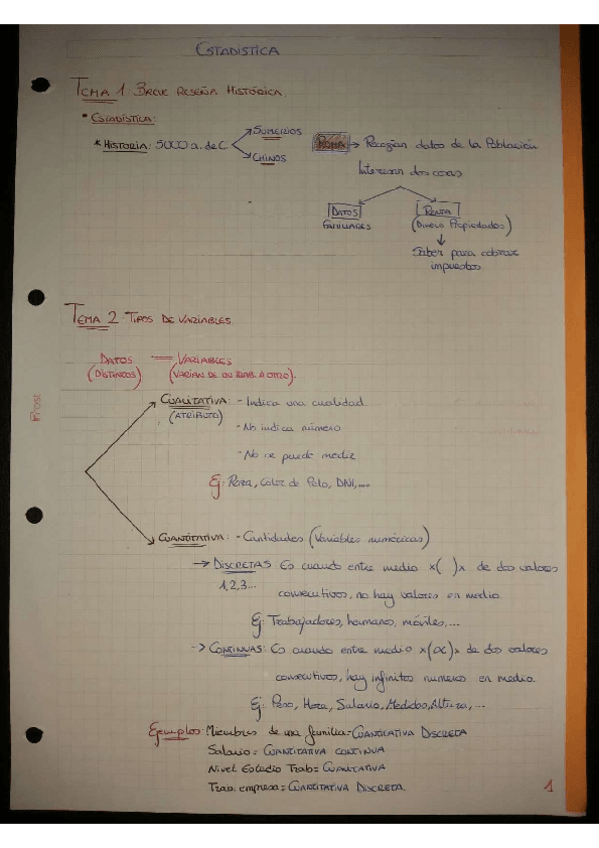 ESTADÍSTICA
TEMA 1: BREVE RESEÑA HISTÓRICA.
• ESTADÍSTICA:
* HISTORIA: 5000 a. de C
SUMERIOS
CHINOS
ROMA → Recogían datos de la Población
Interesan dos cosas
DATOS
FAMILIARES
RENTA
(Dinero Propiedades)
Saber para cobrar
impuestos
TEMA 2: TIPOS DE VARIABLES.
DATOS — VARIABLES
(DISTINTOS) (VARÍAN DE UN TRAB. A OTRO).
CUALITATIVA: - Indica una cualidad
(ATRIBUTO)
- No indica número
- No se puede medir
Ej: Raza, Color de Pelo, DNI,...
CUANTITATIVA: - Cantidades (Variables numéricas)
→ DISCRETAS: Es cuando entre medio x( )x de dos valores
1,2,3... consecutivos, no hay valores en medio.
Ej: Trabajadores, hermanos, móviles,...
→ CONTINUAS: Es cuando entre medio x(∞)x de dos valores
consecutivos, hay infinitos numeros en medio.
Ej: Peso, Hora, Salario, Medidas, Altura,...
Ejemplos: Miembros de una familia = CUANTITATIVA DISCRETA
Salario = CUANTITATIVA CONTINUA
Nivel Estudio Trab = CUALITATIVA
Trab. empresa = CUANTITATIVA DISCRETA.
1